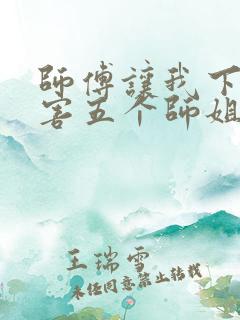 師傅讓我下
害五个師姐
王瑞雪
未经同意禁止转载